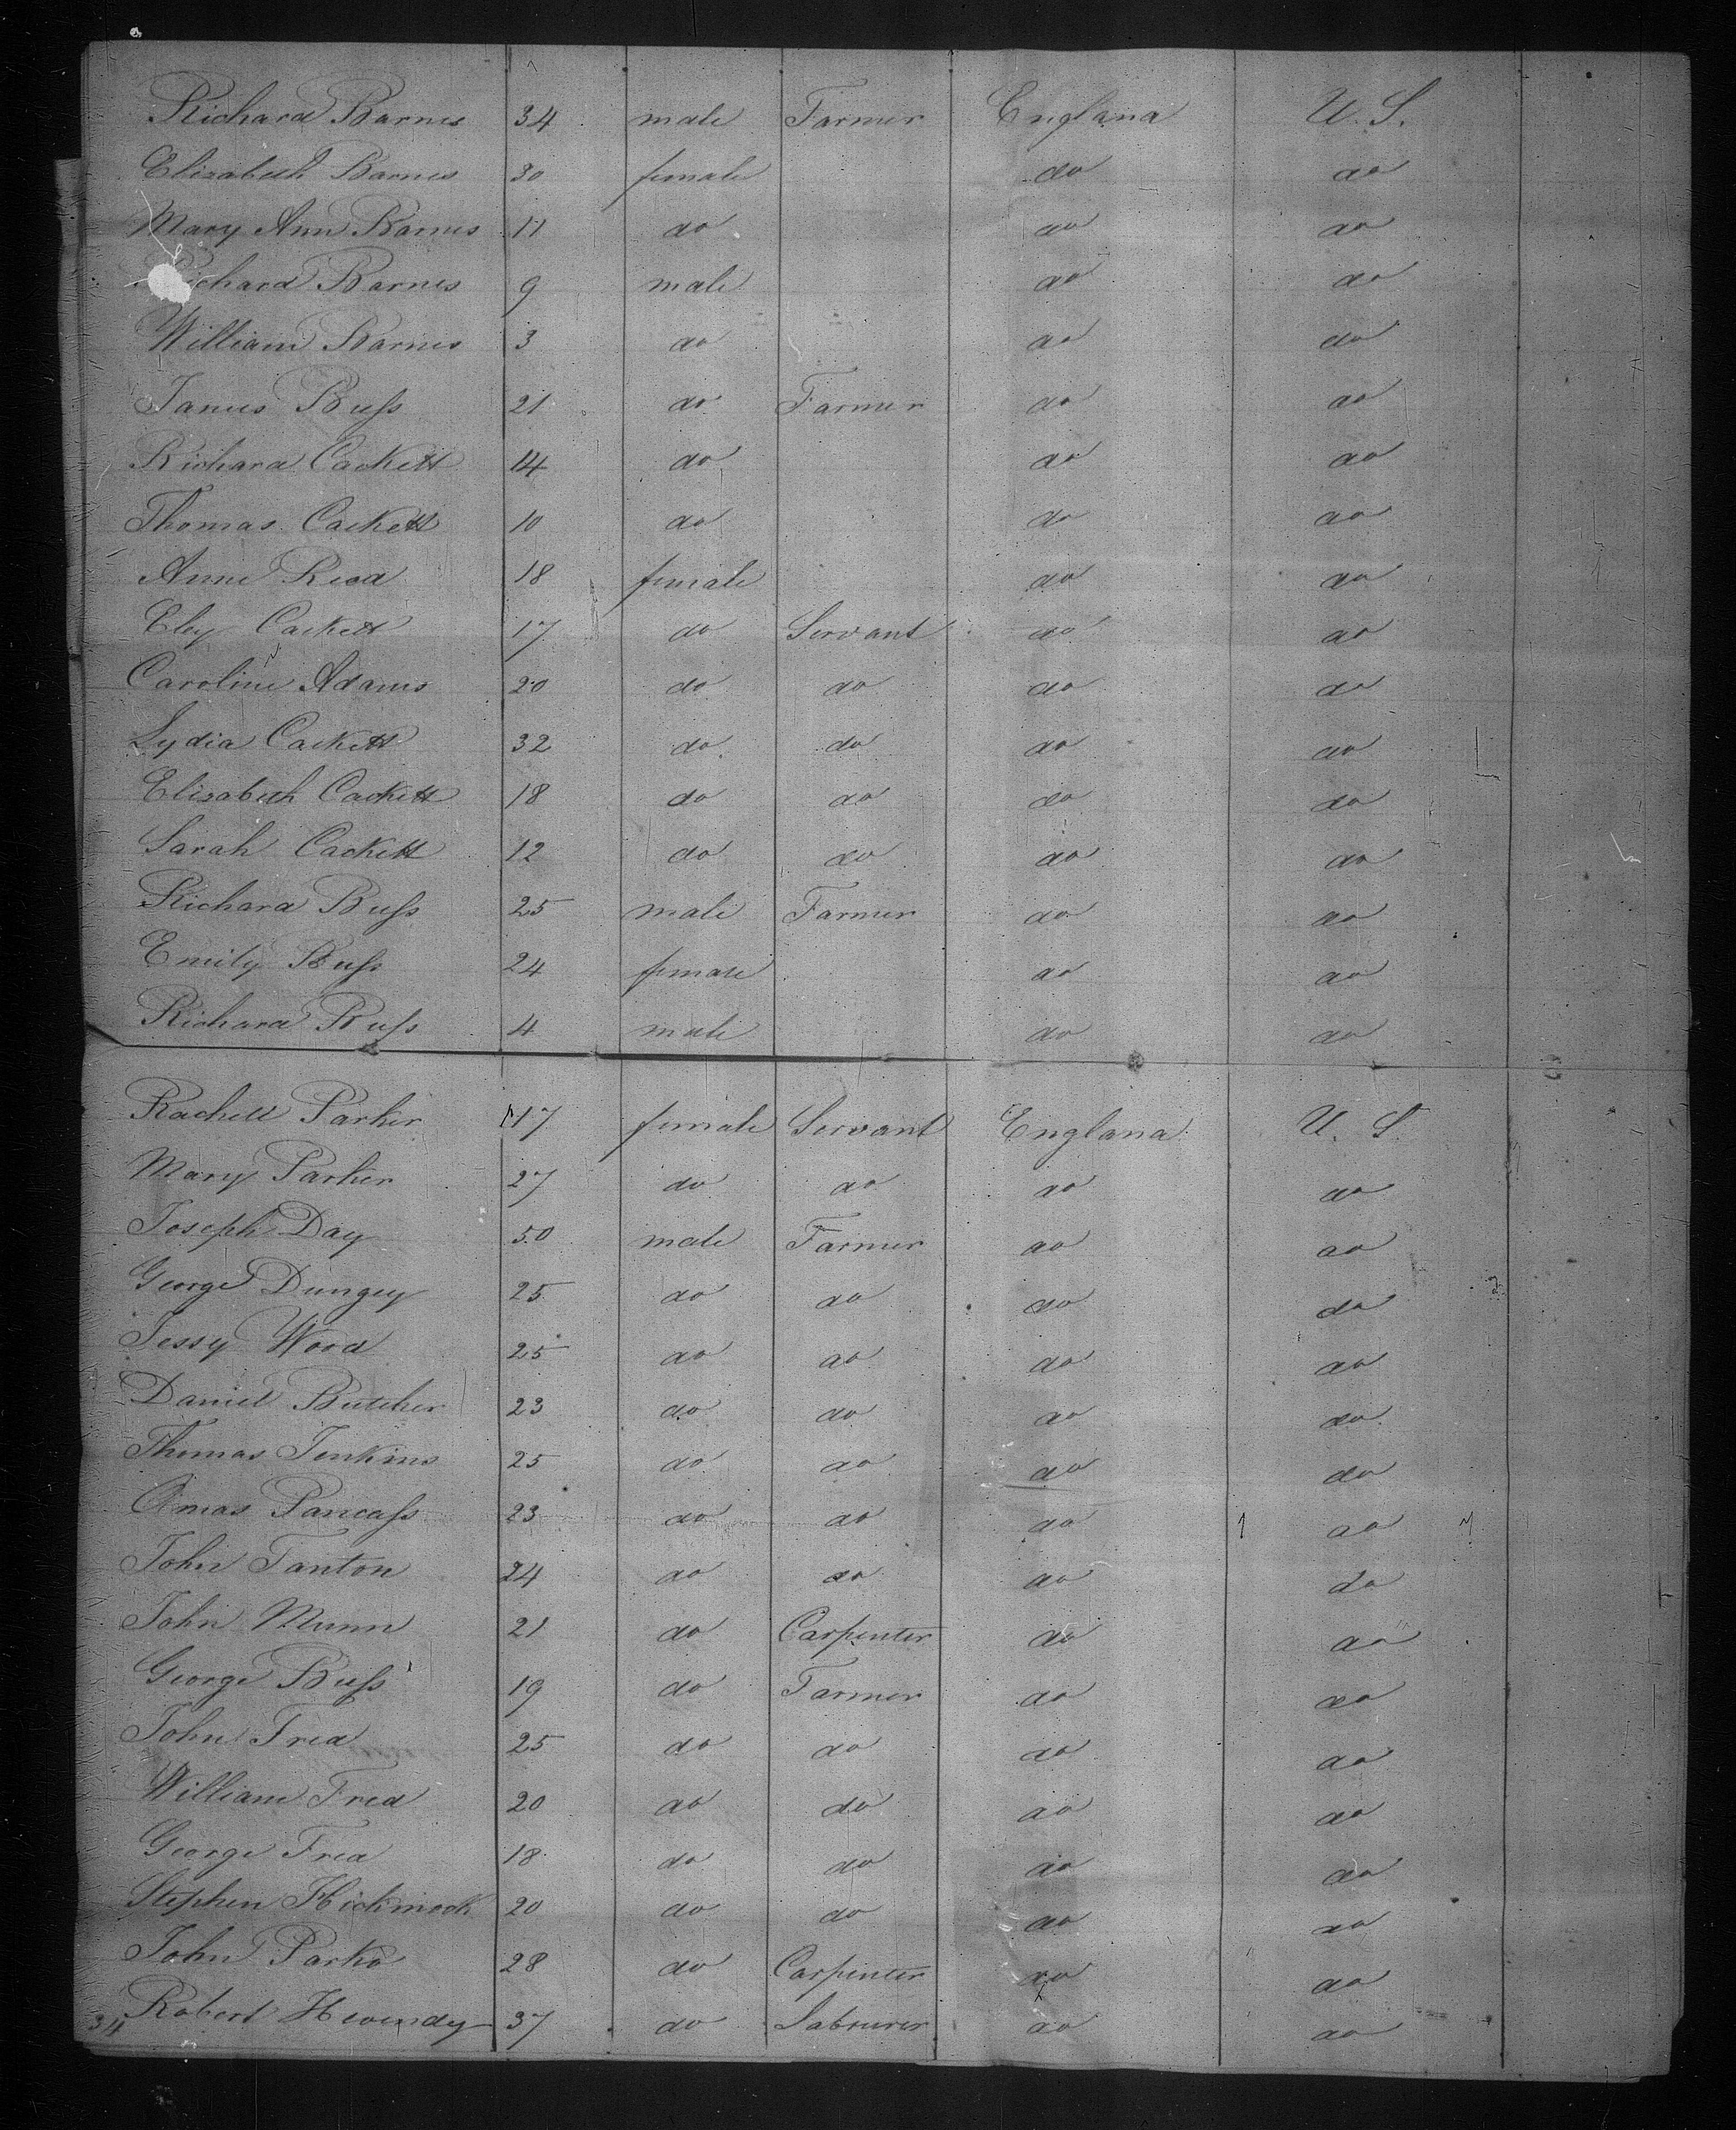 Richard Barnes 34 male Farmer England U.S.
Elizabeth Barnes 30 female do do
Mary Ann Barnes 11 do do do
Richard Barnes 9 male do do
William Barnes 3 do do do
James Buſs 21 do Farmer do do
Richard Cackett 14 do do do
Thomas Cackett 10 do do do
Anne Read 18 female do do
Eley Cackett 17 do Servant do do
Caroline Adams 20 do do do do
Lydia Cackett 32 do do do do
Elizabeth Cackett 18 do do do do
Sarah Cackett 12 do do do do
Richard Buſs 25 male Farmer do do
Emily Buſs 24 female do do
Richard Buſs 4 male do do
Rachell Parker 17 female Servant England U. S.
Mary Parker 27 do do do do
Joseph Day 50 male Farmer do do
George Dungey 25 do do do do
Jessy Wood 25 do do do do
Daniel Butcher 23 do do do do
Thomas Jenkins 25 do do do do
Amas Pancaſs 23 do do do do
John Tanton 24 do do do do
John Munn 21 do Carpenter do do
George Buſs 19 do Farmer do do
John Fred 25 do do do do
William Fred 20 do do do do
George Fred 18 do do do do
Stephen Hickmock 20 do do do do
John Parks 28 do Carpenter do do
34 Robert 37 do Labourer do do